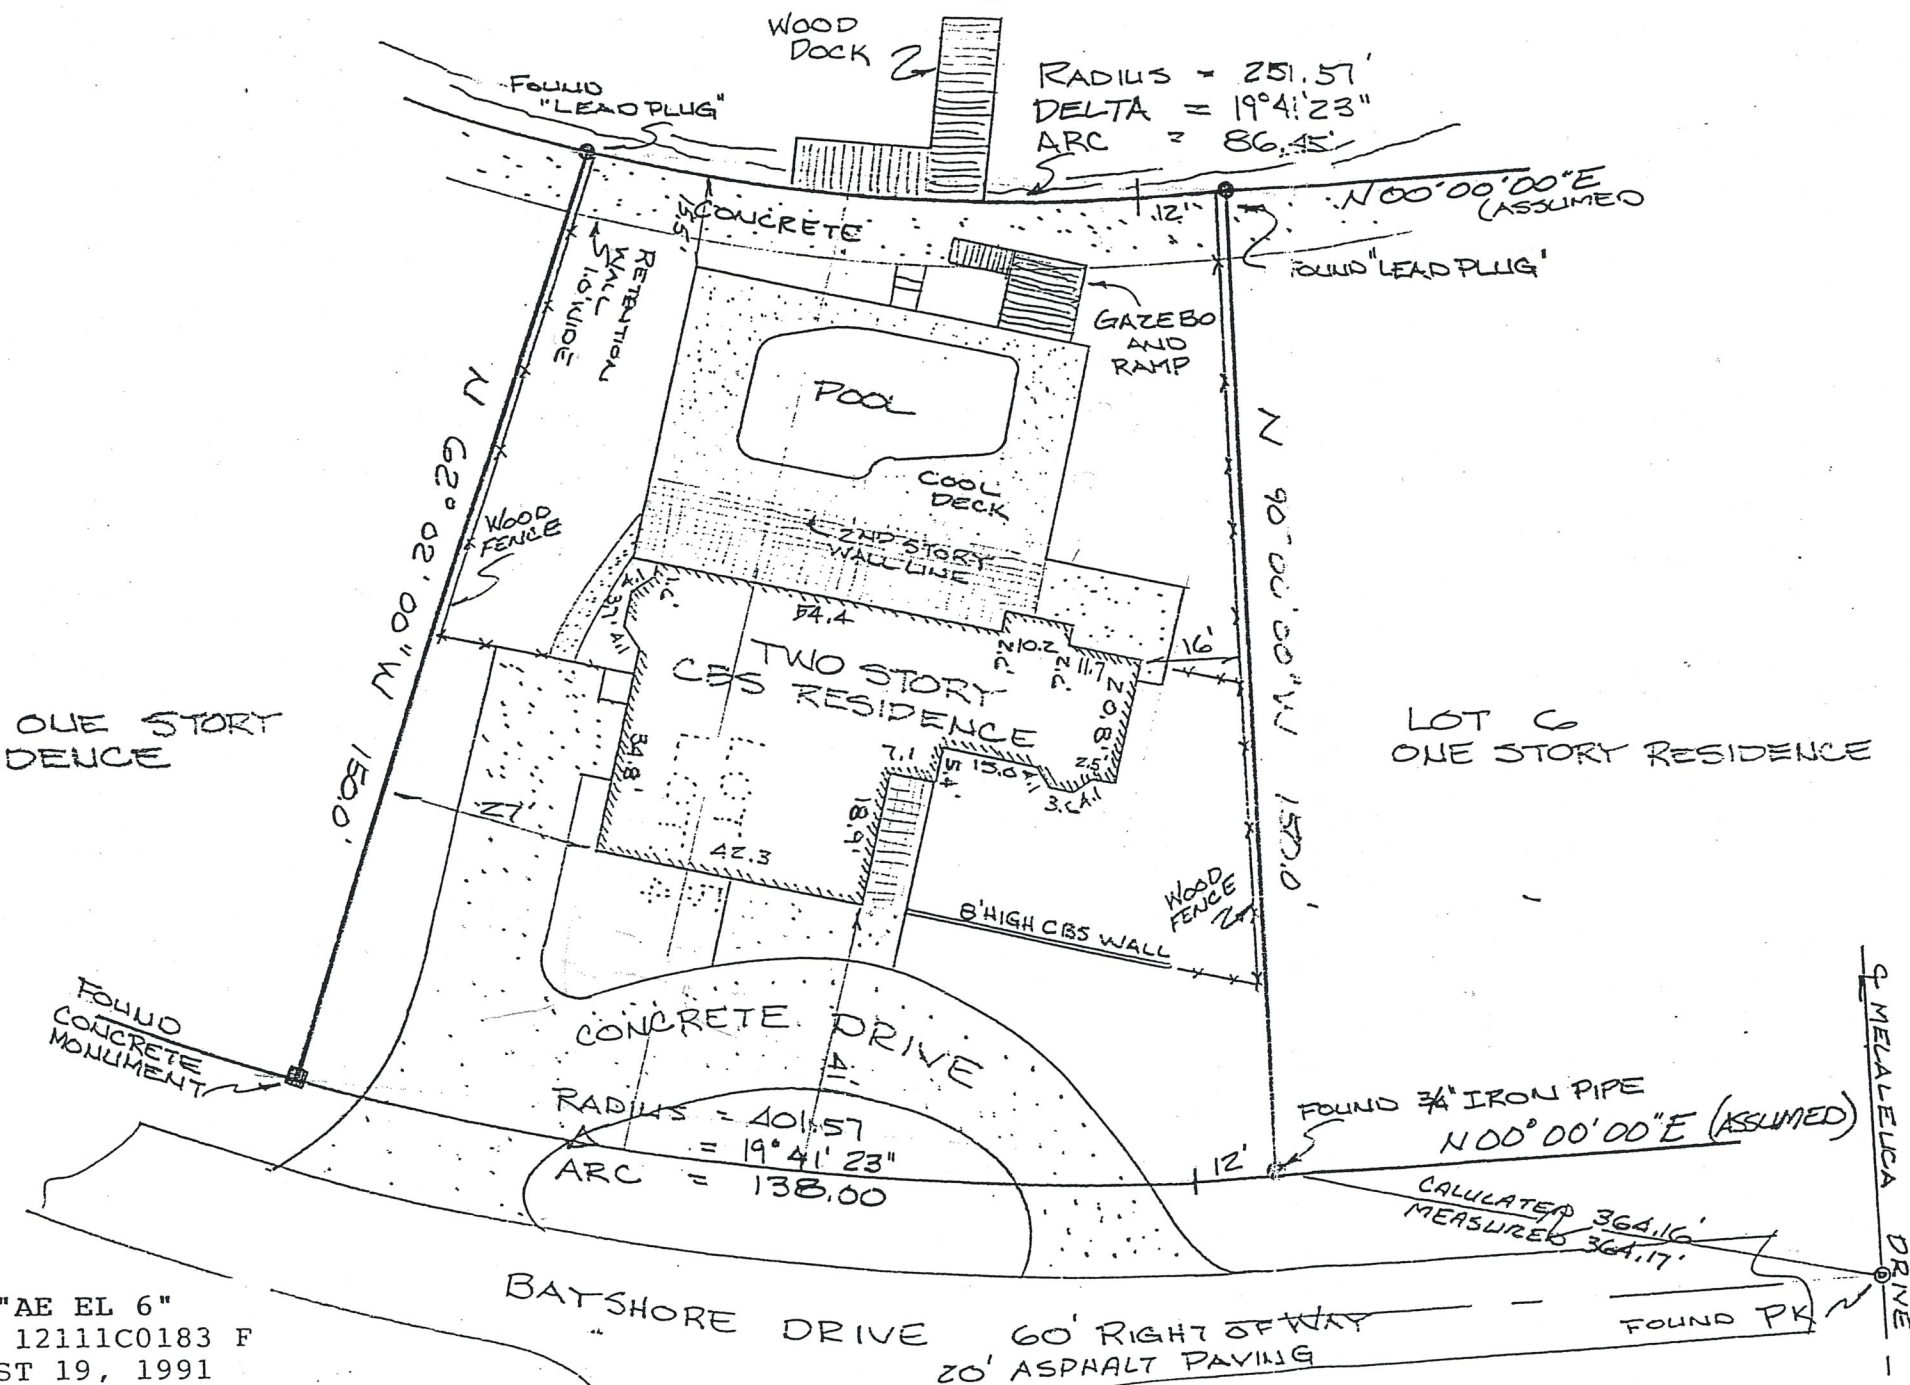 WOOD
DOCK
FOUND
"LEAD PLUG"
RADIUS = 251.57'
DELTA = 19°41'23"
ARC = 86.45'
N 00°00'00"E
(ASSUMED
12'
15.5'
CONCRETE
FOUND "LEAD PLUG"
RETENTION
WALL
1.0' WIDE
GAZEBO
AND
RAMP
POOL
COOL
DECK
2ND STORY
WALL LINE
WOOD
FENCE
N 62° 02' 00" W 150.0'
N 90°00'00"W 150.0'
54.4
10.2
11.7
16'
TWO STORY
CBS RESIDENCE
20.8'
2.5
7.1
5.4'
15.6
4.1
34.8'
18.9'
42.3
27'
ONE STORY
DENCE
LOT 6
ONE STORY RESIDENCE
WOOD
FENCE
8' HIGH CBS WALL
FOUND
CONCRETE
MONUMENT
CONCRETE DRIVE
41'
RADIUS = 401.57
Δ = 19° 41' 23"
ARC = 138.00
12'
FOUND 3/4" IRON PIPE
N 00° 00' 00" E (ASSUMED)
CALULATED 364.16'
MEASURED 364.17'
℄ MELALEUCA DRIVE
FOUND PK
BAYSHORE DRIVE 60' RIGHT OF WAY
20' ASPHALT PAVING
"AE EL 6"
12111C0183 F
ST 19, 1991